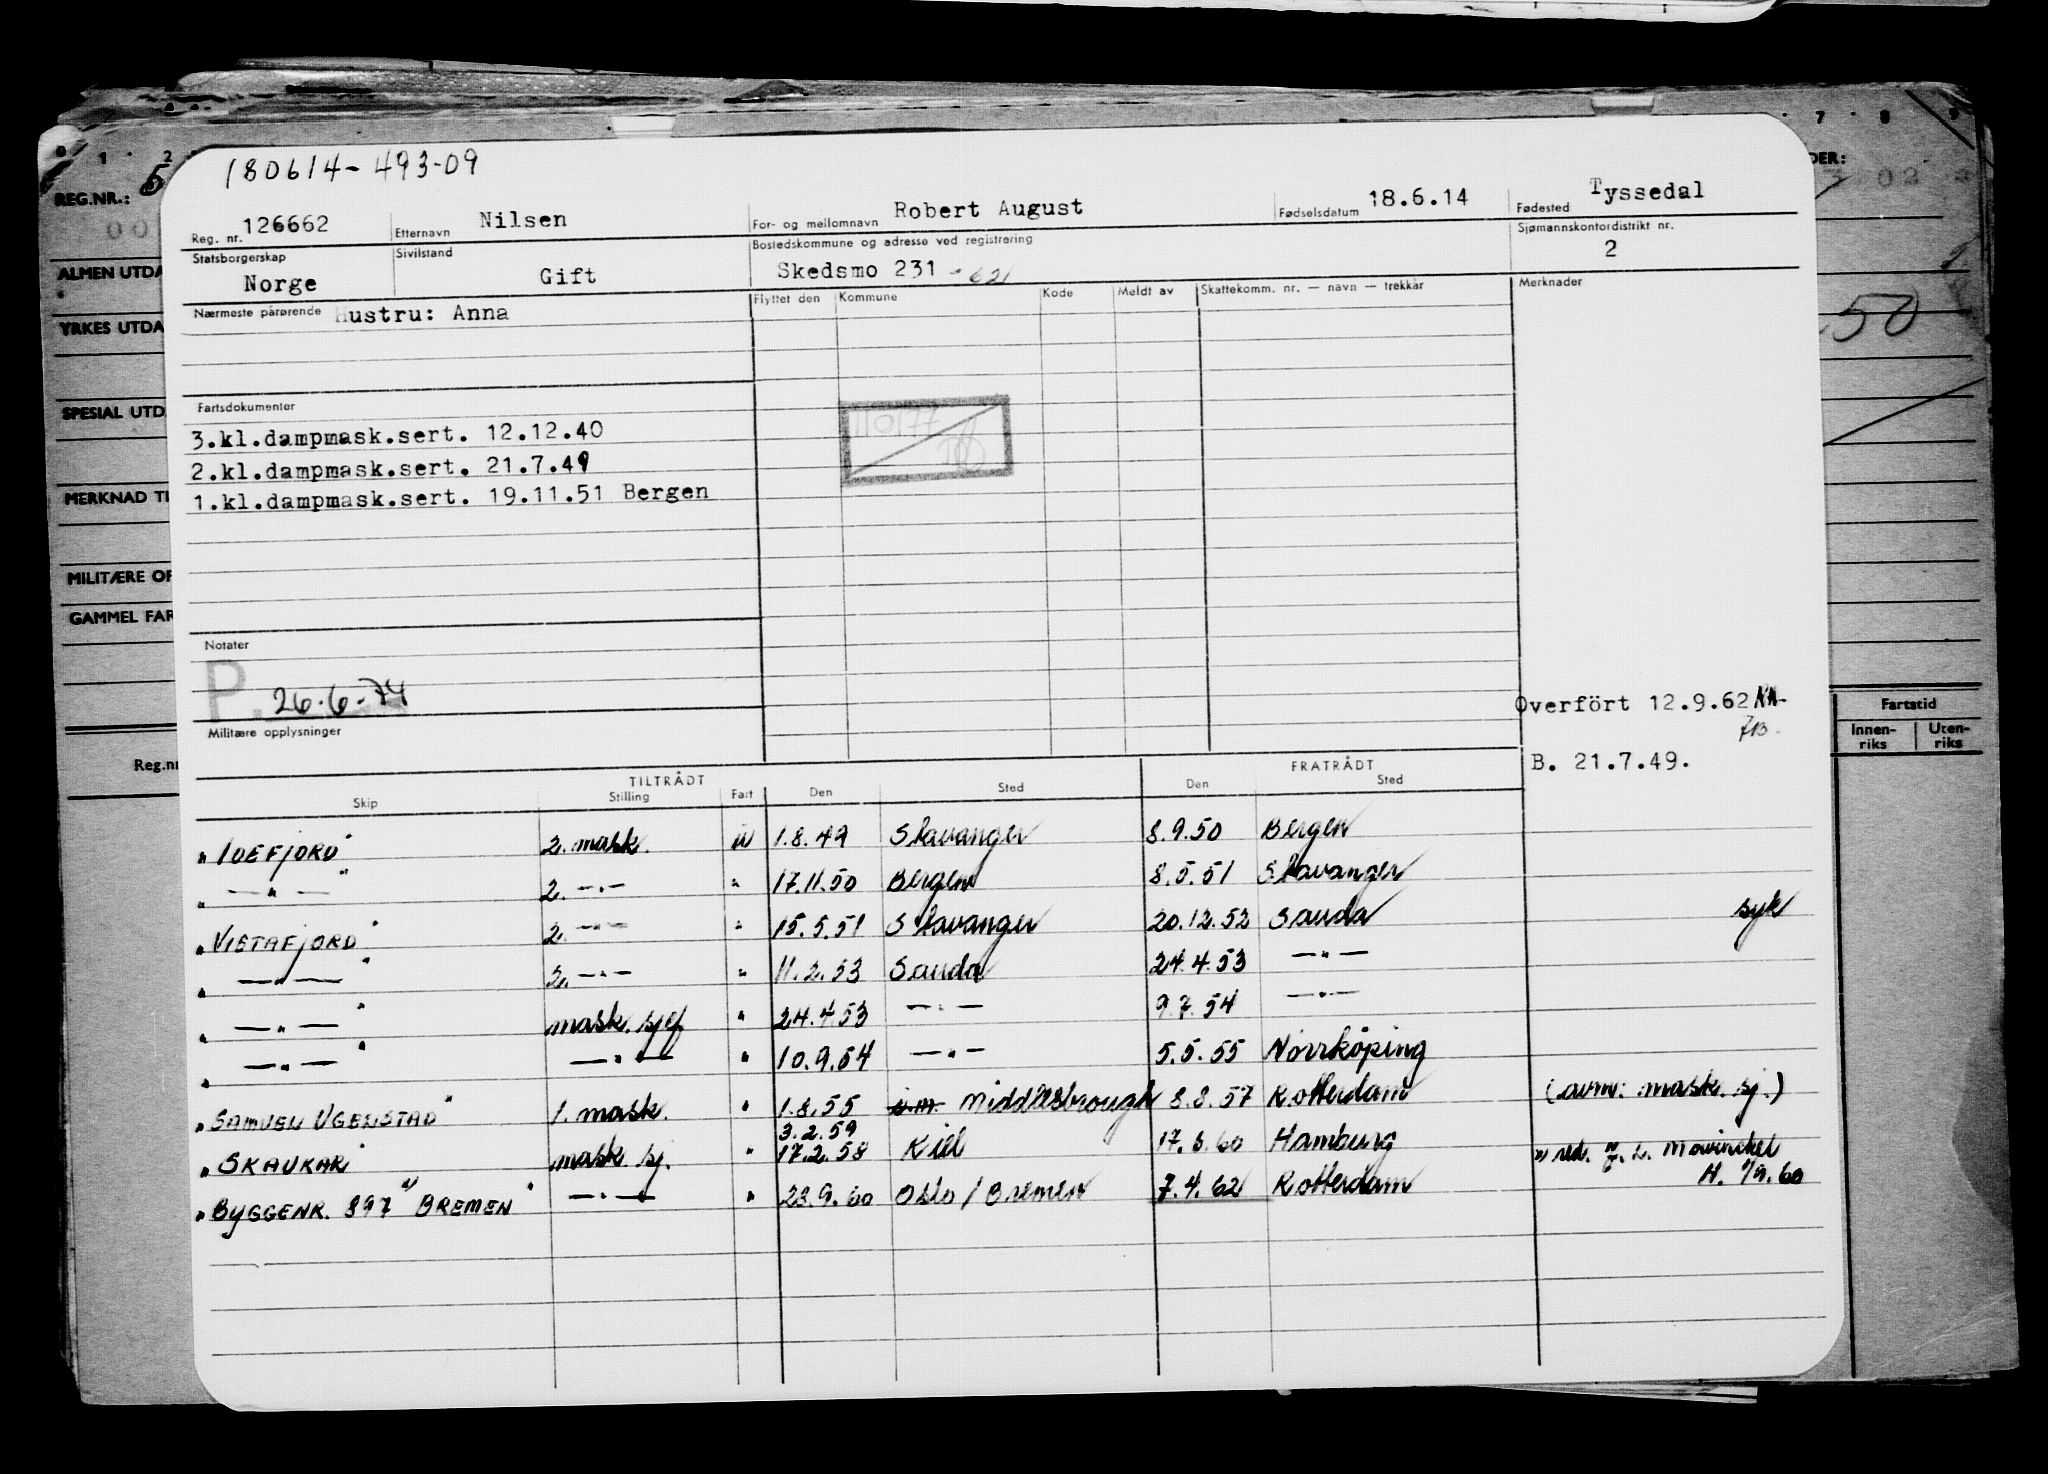 0 1 2 7 8 9
REG.NR.: 5
ALMEN UTDA
YRKES UTDA
SPESIAL UTD
MERKNAD TI
MILITÆRE OF
GAMMEL FAR
Reg.nr
DER:
50
Fartstid
Innen-riks Uten-riks
180614-493-09
Reg. nr. 126662 Etternavn Nilsen For- og mellomnavn Robert August Fødselsdatum 18.6.14 Fødested Tyssedal
Statsborgerskap Norge Sivilstand Gift Bostedskommune og adresse ved registrering Skedsmo 231 - 621 Sjømannskontordistrikt nr. 2
Nærmeste pårørende Hustru: Anna Flyttet den Kommune Kode Meldt av Skattekomm. nr. — navn — trekkår Merknader
Fartsdokumenter
3.kl.dampmask.sert. 12.12.40
2.kl.dampmask.sert. 21.7.49
1.kl.dampmask.sert. 19.11.51 Bergen
110177
Notater
P. 26.6.74
Militære opplysninger
Overfört 12.9.62
B. 21.7.49.
TILTRÅDT FRATRÅDT
Skip Stilling Fart Den Sted Den Sted
"IDEFJORD" 2. mask. u 1.8.49 Stavanger 8.9.50 Bergen
" —"— " 2. —"— " 17.11.50 Bergen 8.5.51 Stavanger
"VISTAFJORD" 2. —"— " 15.5.51 Stavanger 20.12.52 Sauda syk
" —"— " 2. —"— " 11.2.53 Sauda 24.4.53 —"—
" —"— " mask. sjef " 24.4.53 —"— 9.7.54 —"—
" —"— " —"— " 10.9.54 —"— 5.5.55 Norrköping
"SAMUEL UGELSTAD" 1. mask. " 1.8.55 Middlesbrough 8.8.57 Rotterdam (avm: mask. sj.)
3.2.59
"SKAUKAR" mask. sj. " 17.2.58 Kiel 17.6.60 Hamburg " red. J. L. Mowinckel
"BYGGENR. 897 BREMEN" —"— " 23.9.60 Oslo / Bremen 7.4.62 Rotterdam H. 1/9.60